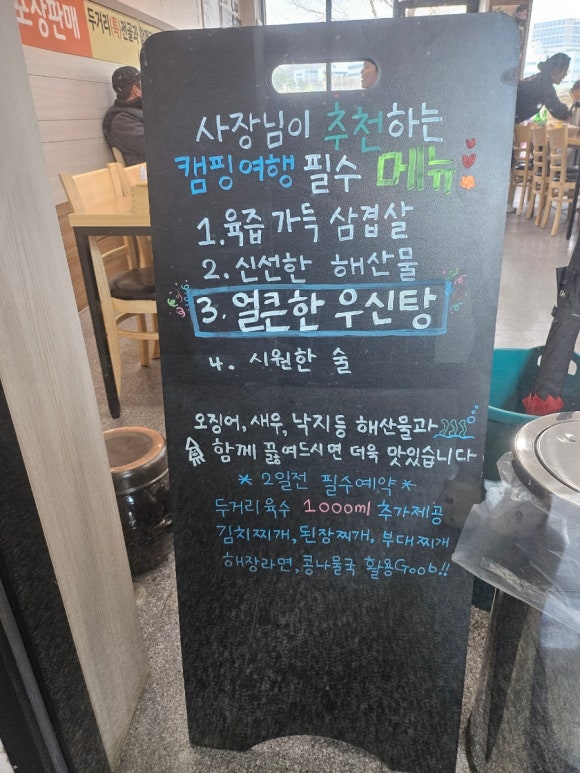 포장판매
두거리(특)전골과
사장님이 추천하는
캠핑여행 필수 메뉴
1. 육즙 가득 삼겹살
2. 신선한 해산물
3. 얼큰한 우신탕
4. 시원한 술
오징어, 새우, 낙지등 해산물과
함께 끓여드시면 더욱 맛있습니다
* 2일전 필수예약 *
두거리육수 1000ml 추가제공
김치찌개, 된장찌개, 부대찌개
해장라면, 콩나물국 활용Goob!!